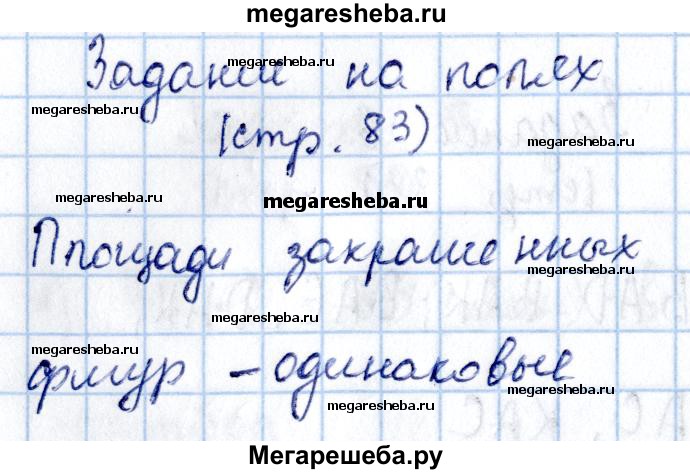 megaresheba.ru
Задание на полях
megaresheba.ru
megaresheba.ru
(стр. 83)
megaresheba.ru
megaresheba.ru
megaresheba.ru
Площади закрашенных
megaresheba.ru
megaresheba.ru
megaresheba.ru
фигур – одинаковые
megaresheba.ru
megaresheba.ru
Мегарешеба.ру